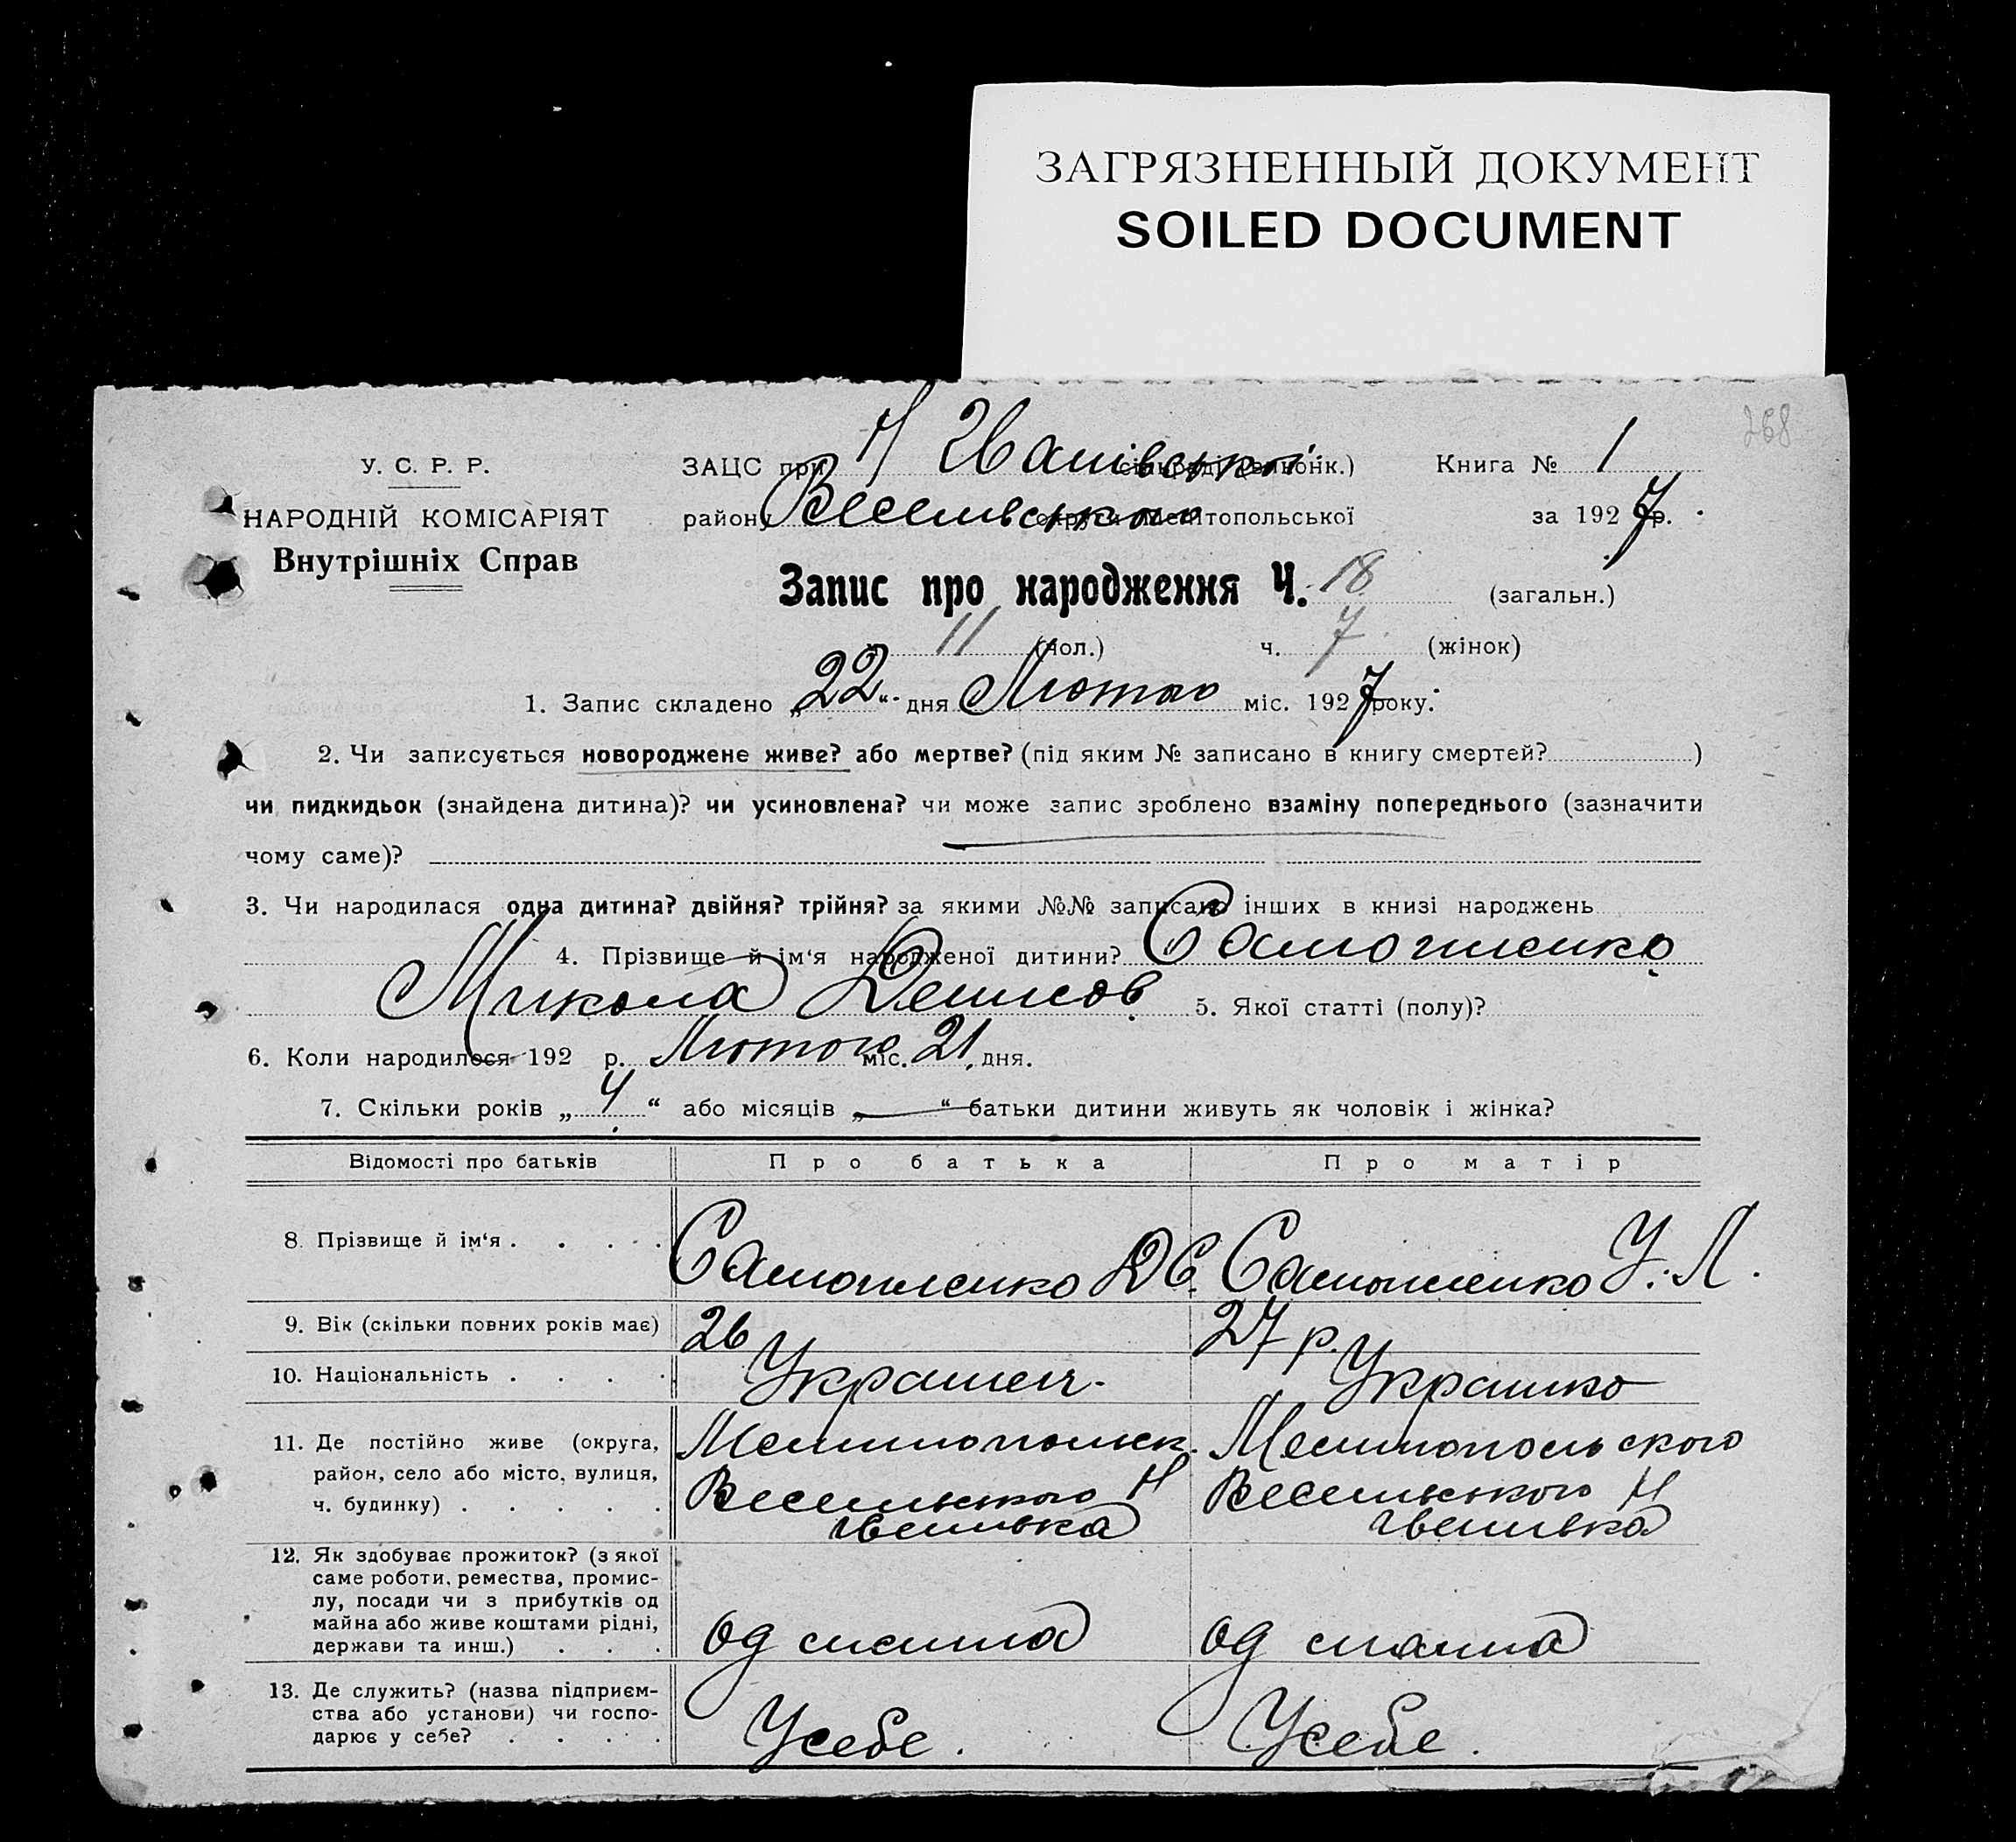 ЗАГРЯЗНЕННЫЙ ДОКУМЕНТ
SOILED DOCUMENT
268
У. С. Р. Р.
НАРОДНІЙ КОМІСАРІЯТ
Внутрішніх Справ
ЗАЦС при Н Іванівській Книга № 1
району Веселівського округи Мелітопольської за 1927 р.
Запис про народження Ч. 18 (загальн.)
11 (чол.) ч. 7 (жінок)
1. Запис складено „22“ дня Лютого міс. 1927 року.
2. Чи записується новороджене живе? або мертве? (під яким № записано в книгу смертей? )
чи пидкидьок (знайдена дитина)? чи усиновлена? чи може запис зроблено взаміну попереднього (зазначити
чому саме)?
3. Чи народилася одна дитина? двійня? трійня? за якими №№ записано інших в книзі народжень
4. Прізвище й ім‘я народженої дитини?
Микола Денисов 5. Якої статті (полу)?
6. Коли народилося 192 р. Лютого міс. 21 дня.
7. Скільки років „4“ або місяців „—“ батьки дитини живуть як чоловік і жінка?
Відомості про батьків Про батька Про матір
8. Прізвище й ім‘я . . . . Д С. У. Л.
9. Вік (скільки повних років має) 26 27 р.
10. Національність . . . . Украинец. Украинко
11. Де постійно живе (округа, район, село або місто, вулиця, ч. будинку) . . . . .
Мелитопольск. Мелитопольского
Веселивского Н Веселивского Н
12. Як здобуває прожиток? (з якої
саме роботи, ремества, промис-
лу, посади чи з прибутків од
майна або живе коштами рідні,
держави та инш.) . . .
од од
13. Де служить? (назва підприєм-
ства або установи) чи госпо-
дарює у себе? . . . .
Усебе. Усебе.